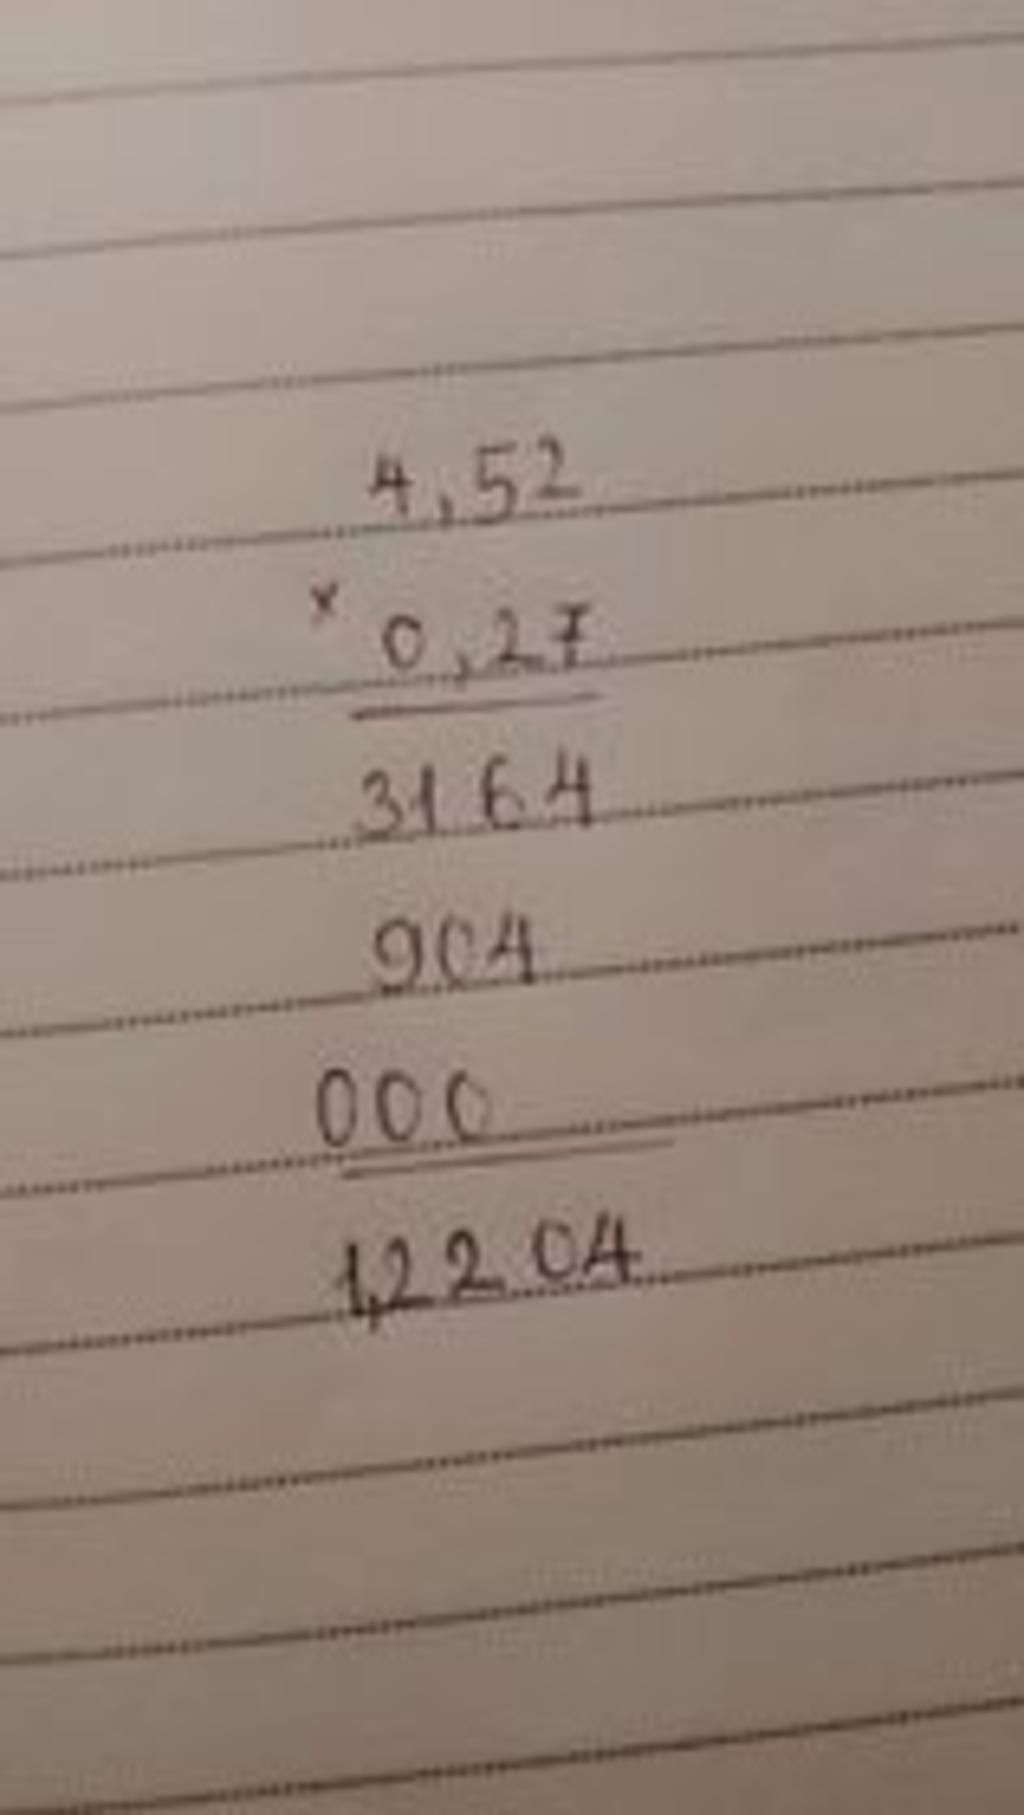 4,52
× 0,27
3164
904
000
1,2204